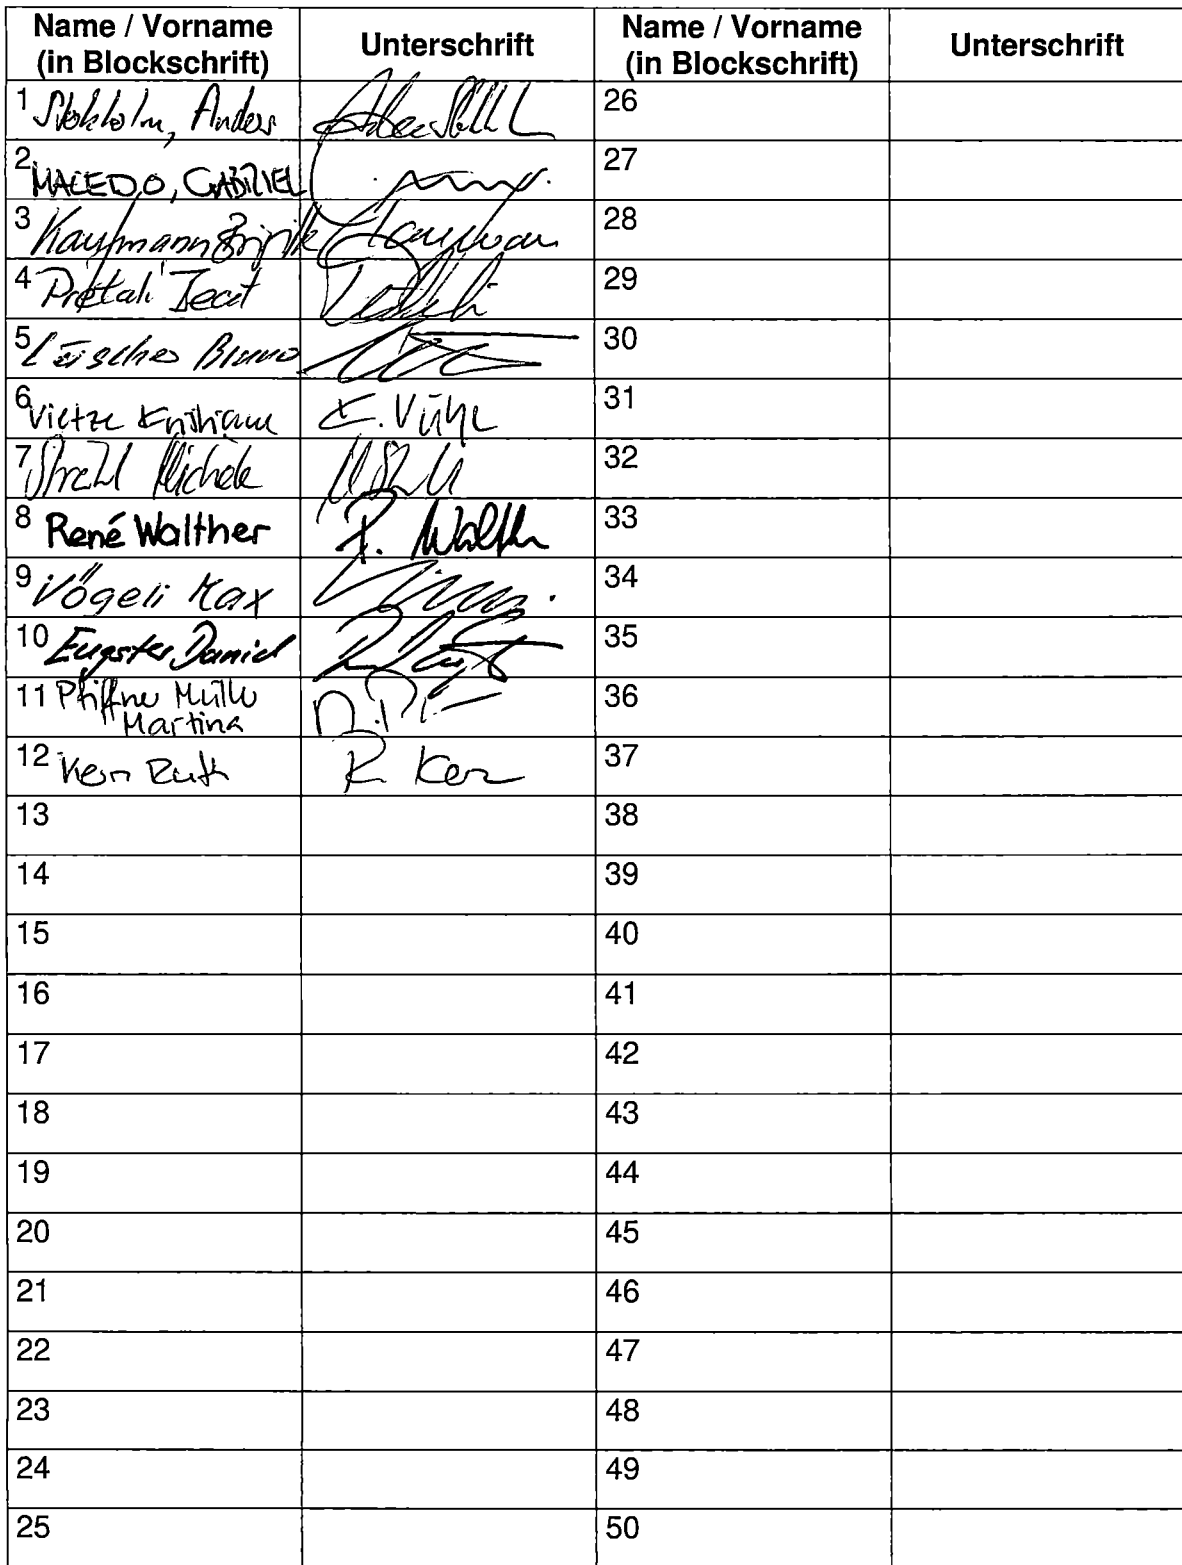 Name / Vorname
(in Blockschrift)
Unterschrift
Name / Vorname
(in Blockschrift)
Unterschrift
1 Stokholm, Anders
26
2 MACEDO, GABRIEL
27
3 Kaufmann Brigitte
28
4 Pretali
29
5 Lüscher Bruno
30
6 Vietze Kristiane
K. Vietze
31
7 Strahl Michèle
32
8 René Walther
R. Walther
33
9 Vögeli Max
34
10 Eugster Daniel
35
11 Pfiffner Müller
Martina
36
12 Kern Ruth
R Kern
37
13
38
14
39
15
40
16
41
17
42
18
43
19
44
20
45
21
46
22
47
23
48
24
49
25
50